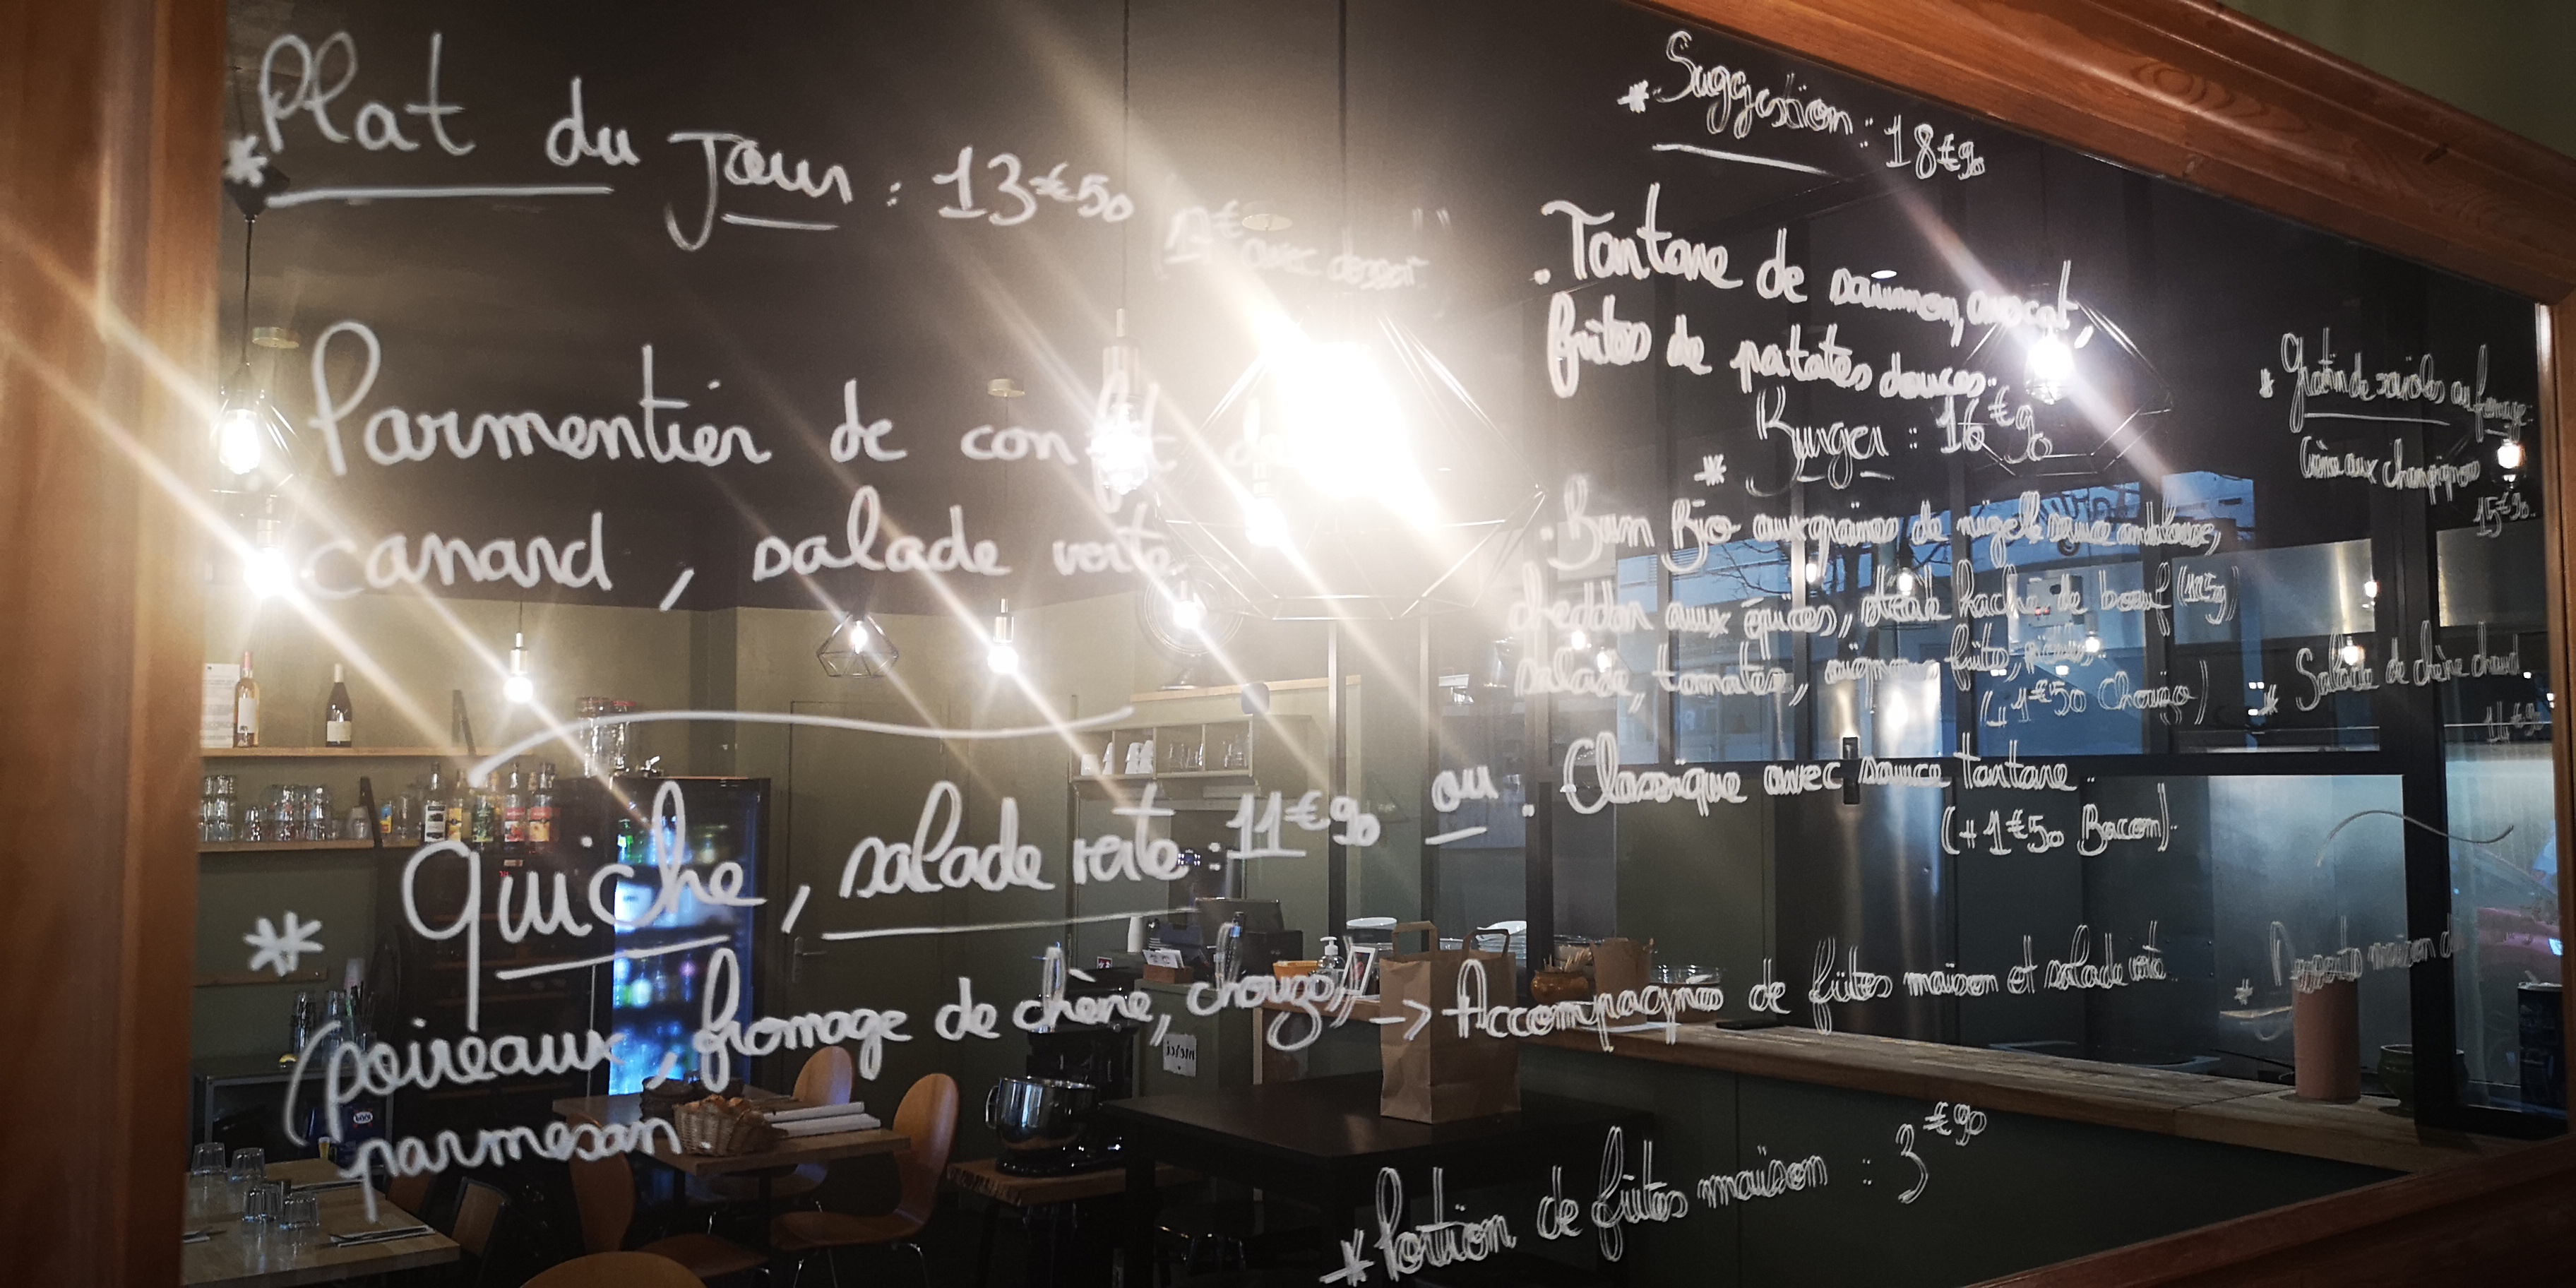 * Plat du Jour : 13€50
(17€ avec dessert)
Parmentier de confit de
canard, salade verte
* Quiche, salade verte : 11€90
(poireaux, fromage de chèvre, chorizo,
parmesan
* Suggestion : 18€90
. Tartare de saumon, avocat,
frites de patates douces.
* Burger : 16€90
. Bun Bio aux graines de nigelle sauce andalouse,
cheddar aux épices, steak haché de boeuf (125g)
salade, tomates, oignons frits, pickles
(+1€50 Chorizo)
ou . Classique avec sauce tartare
(+1€50 Bacon)
-> Accompagnés de frites maison et salade verte
* Portion de frites maison : 3€90
* Gratin de ravioles au fromage
Crème aux champignons
15€90
* Salade de chèvre chaud
14€90
* Desserts maison
merci